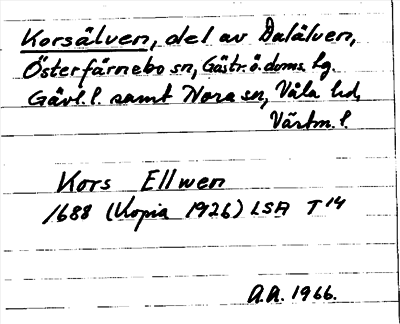 Korsälven, del av Dalälven,
Österfärnebo sn, Gästr. ö. doms. hg.
Gävl. l. samt Nora sn, Våla hd,
Västm. l.
Kors Ellwen
1688 (Kopia 1926) LSA T 14
A.A. 1966.